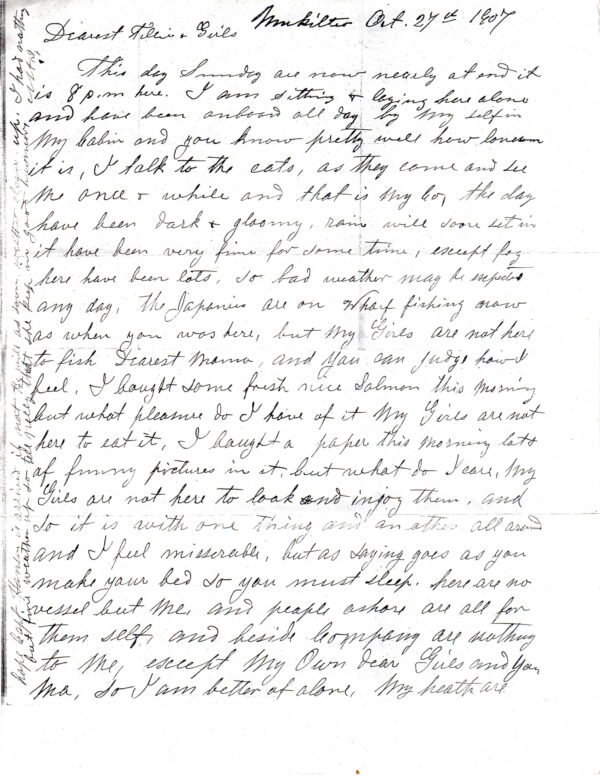 Mukilteo Oct. 27th 1907
Dearest & Girls
This day Sunday are now nearly at end it
is 8 p.m here. I am sitting & laying here alone
and have been onboard all day by my self in
My Cabin and you know pretty well how lonesom
it is, I talk to the cats, as they come and see
me once & while and that is my Co, the day
have been dark & gloomy, rain will soon set in
it have been very fine for some time, except fog
here have been lots, so bad weather may be expected
any day, the Japanies are on wharf fishing now
as when you was here, but My Girls are not here
to fish Dearest Mama, and you can judge how I
feel. I baught some frish nice Salmon this morning
but what pleasure do I have of it My Girls are not
here to eat it, I baught a paper this morning lots
of funny pictures in it, but what do I care, My
Girls are not here to look and injoy them, and
so it is with one thing and an other all around
and I feel misserable, but as saying goes as you
make your bed so you must sleep. here are no
vessel but me, and people ashore are all for
them self, and beside Company are nothing
to me, except My Own dear Girls and You
Ma, so I am better of alone, My heath are
hope Capt. is arrived if not he will as soon weather clear up. I had
but fine weather up so feel that keep in good